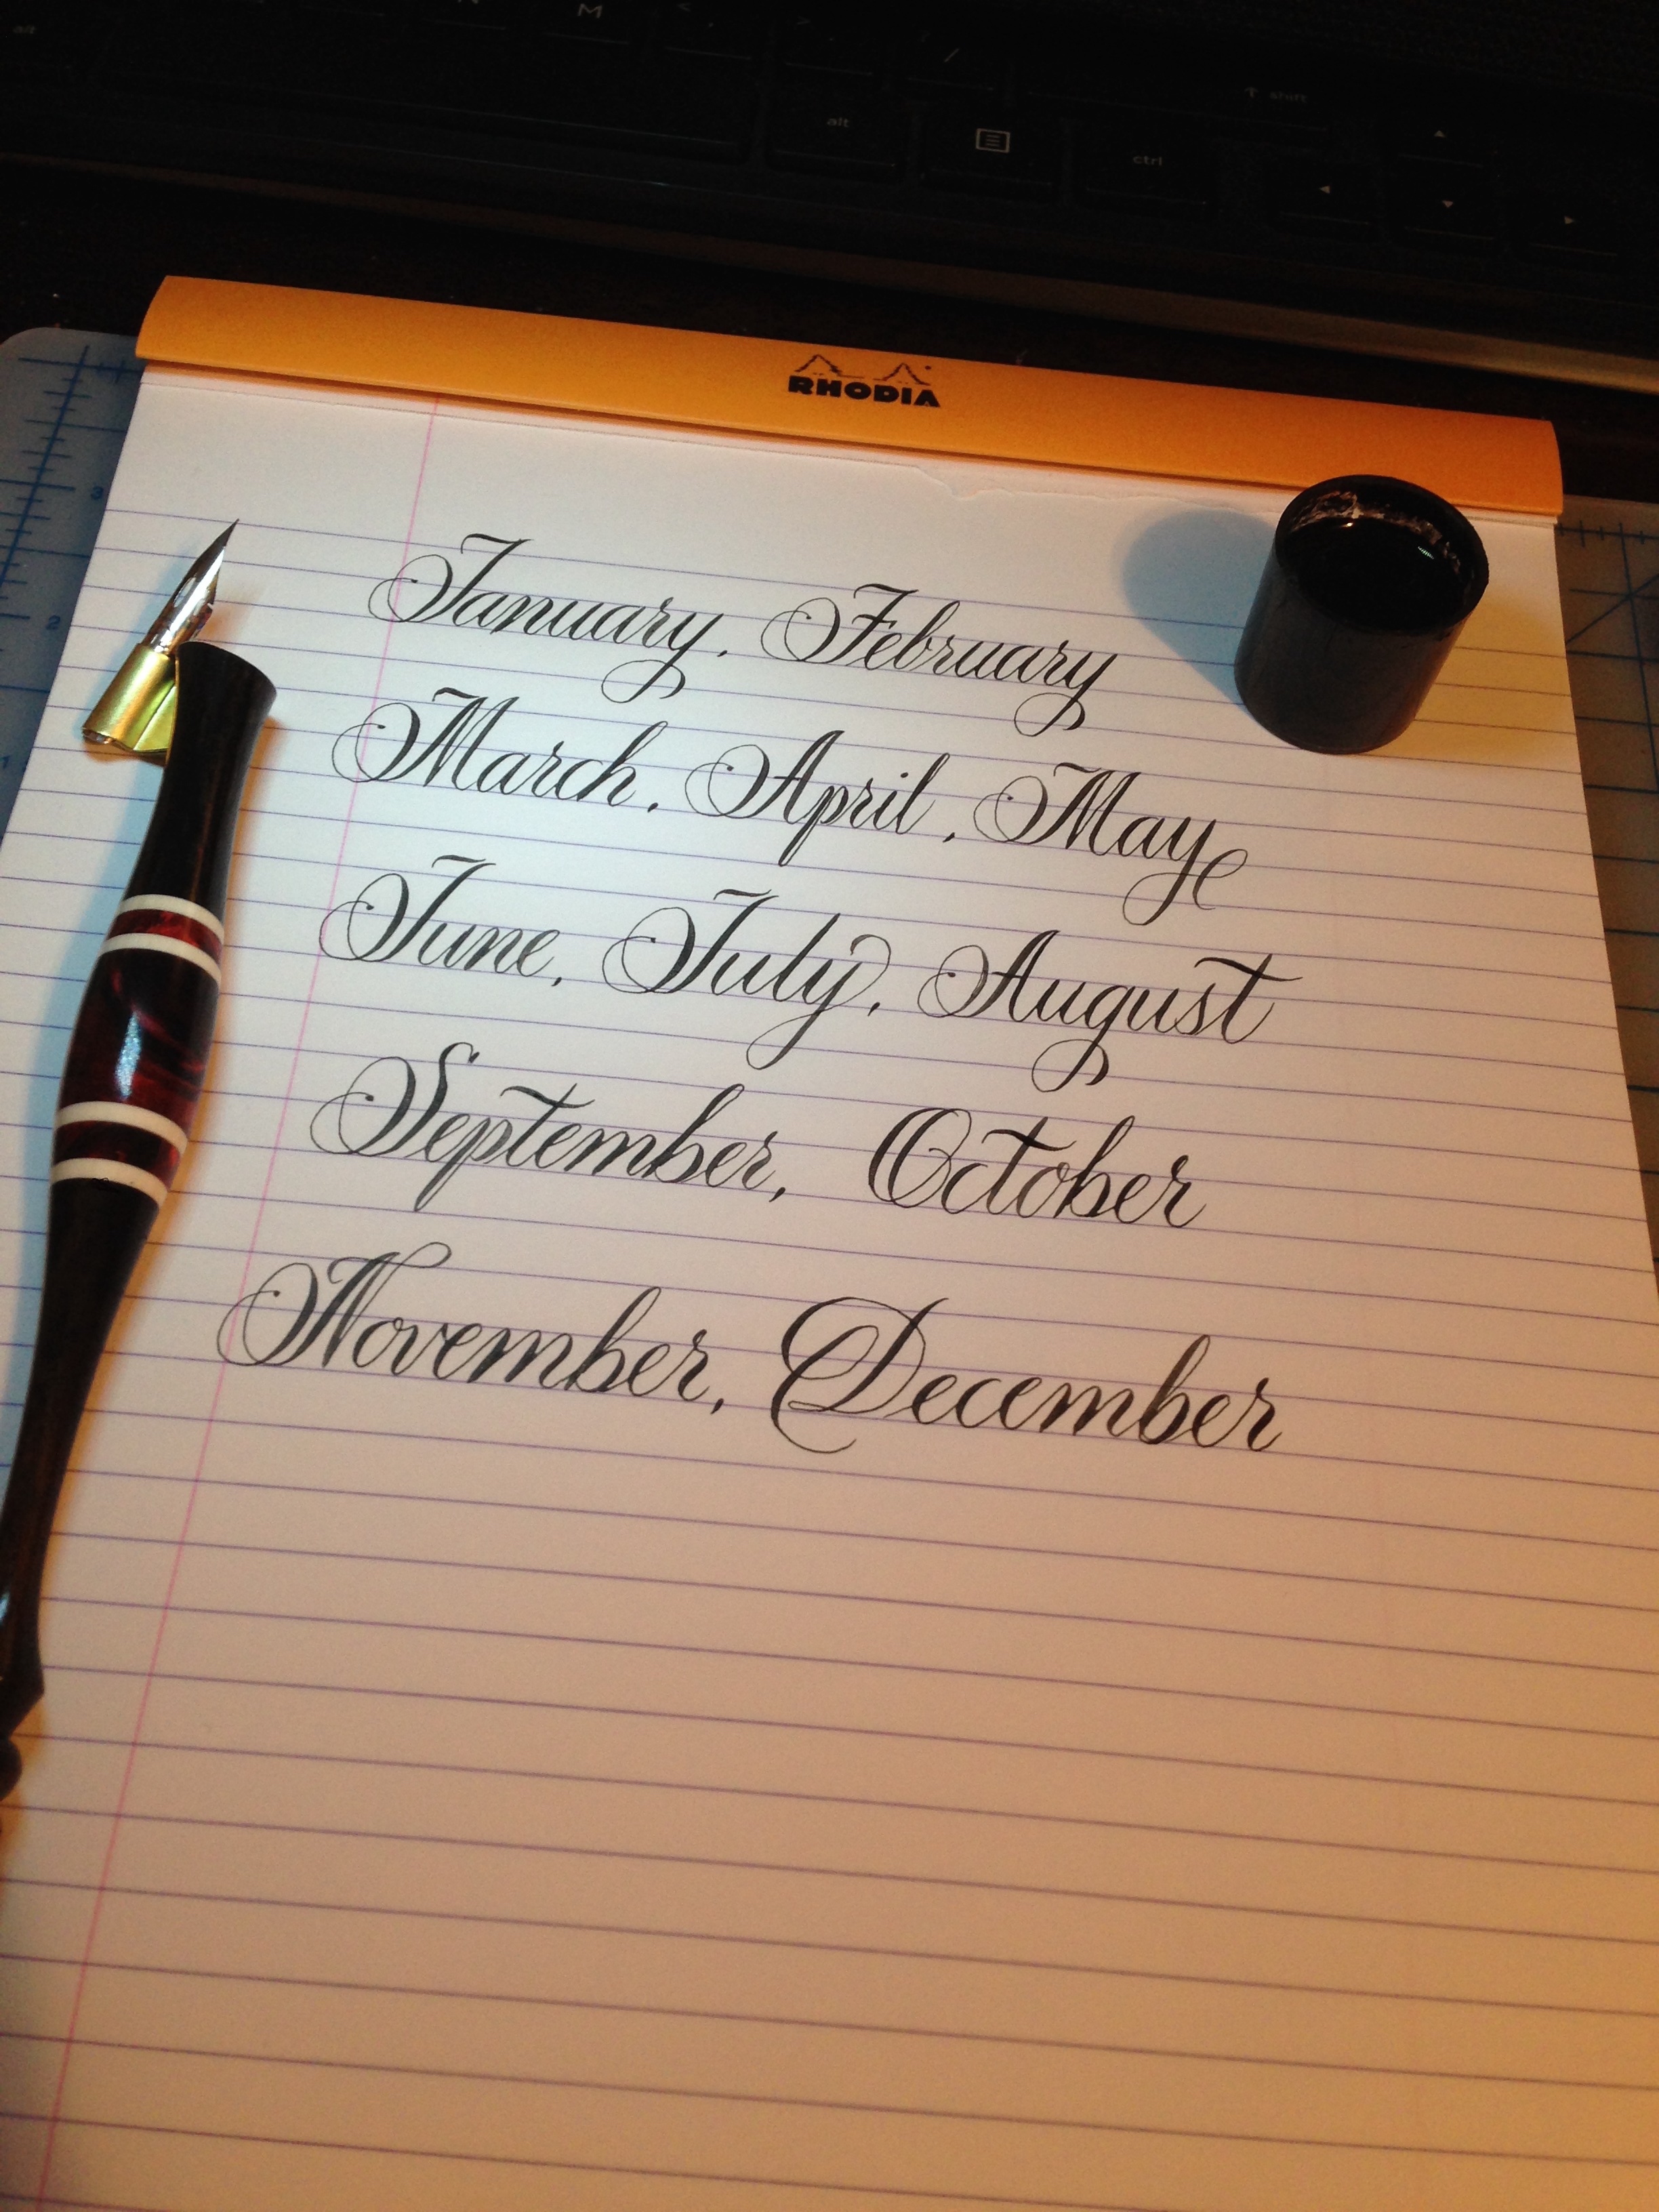 M
alt
alt
ctrl
↑ shift
RHODIA
3
2
1
January, February
March, April, May
June, July, August
September, October
November, December